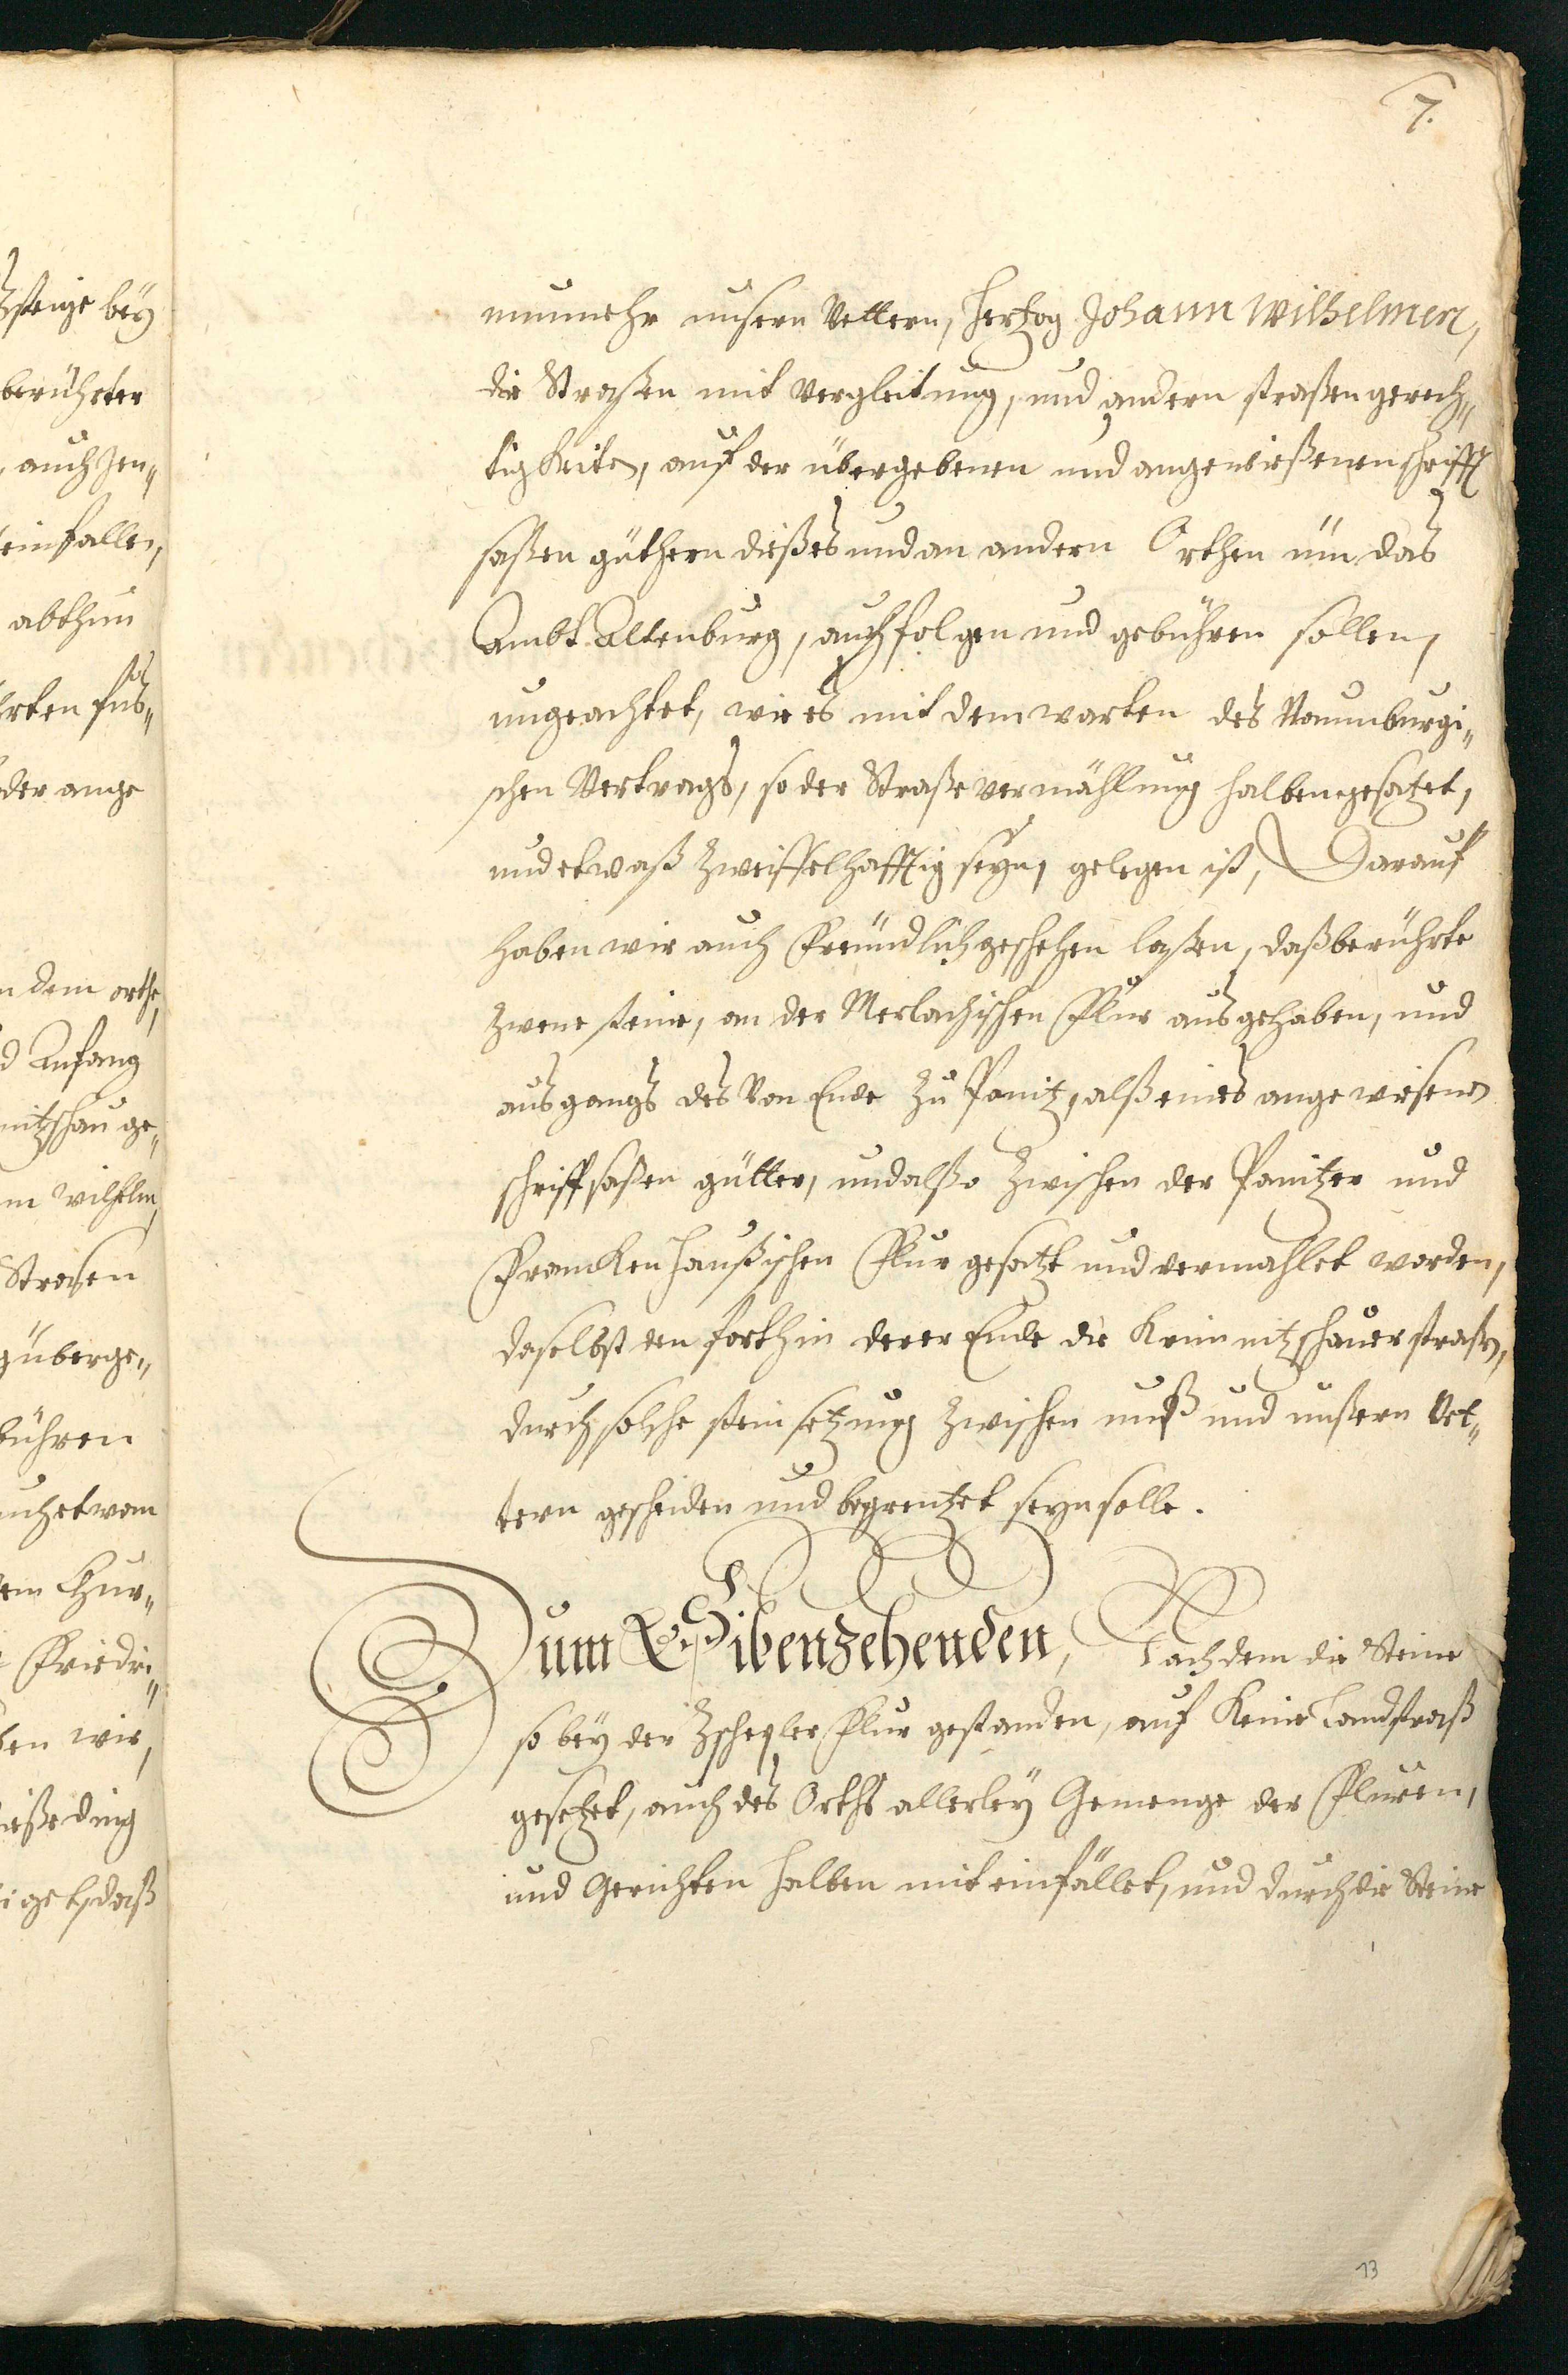 7.
nunmehr unsern Vettern, Hertzog Johann Wilhelmen,
die Straßen mit Vergleitung, und andern straßengerech„
tigkeiten, auf der übergebenen und angewießenen schrifft
saßen güthern dießes und an andern Orthen üm das
Ambt Altenburg, auch folgen und gebühren sollen,
ungeachtet, wie es mit dem warten des Naumburgi„
schen Vertrags, so der Straße vermahlung halben gesatzet,
und etwaß zweiffelhafftig seyn, gelegen ist, Darauf
haben wir auch freündlich geschehen laßen, daß berührte
zwene steine, an der Merlachischen Fluhr ausgehaben, und
ausgangs des von Ende zu Ponitz, alß eines angewiesenen
schriftsaßen gütter, und alßo zwischen der Ponitzer und
Franckenhaußischen Flur gesatzt und vermahlet worden,
daselbsten forthin derer Ende die Krimmitzschauer straßen,
durch solche stein setzung zwischen unß und unßern Vet„
tern gescheiden und begrentzet seyn solle.
Zum Sibenzehenden, Nachdem die Steine
so bey der Zscheßler Flur gestanden, auf keine Landstraß
gesetzet, auch des Orths allerley Gemenge der Fluren,
und Gerichten halben mit einfället, und durch die Steine
13
steige bey
berührter
, auch Jen„
einfallen,
abthun
der ange
n dem orthe,
d Anfang
nitzschau ge„
m Wilhelm,
Straßen
zu überge„
bühren
em Chur„
Friedri„
ben wir,
ieße ding
iget, daß